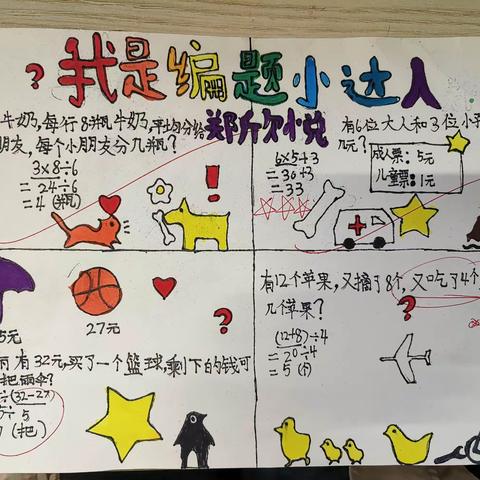 ?我是编题小达人
牛奶,每行8瓶牛奶,平均分给
朋友,每个小朋友分几瓶?
3×8÷6
=24÷6
=4(瓶)
!
有6位大人和3位小
几元?
成人票:5元
儿童票:1元
6×5+3
=30+3
=33
5元
27元
?
有32元,买了一个篮球,剩下的钱可
把雨伞?
÷(32-27)
÷5
(把)
有12个苹果,又摘了8个,又吃了4个
几个苹果?
?
(12+8)÷4
=20÷4
=5(个)